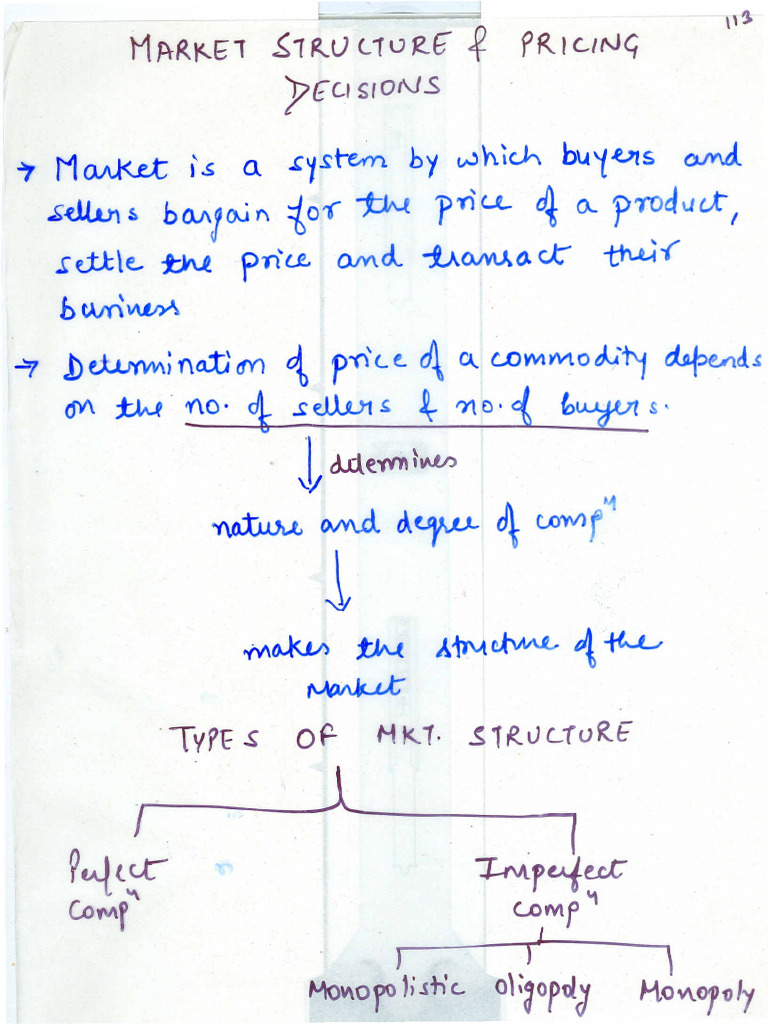 113
MARKET STRUCTURE & PRICING
DECISIONS
→ Market is a system by which buyers and
sellers bargain for the price of a product,
settle the price and transact their
business
→ Determination of price of a commodity depends
on the no. of sellers & no. of buyers.
determines
nature and degree of compⁿ
makes the structure of the
Market
TYPES OF MKT. STRUCTURE
Perfect Imperfect
compⁿ compⁿ
Monopolistic Oligopoly Monopoly